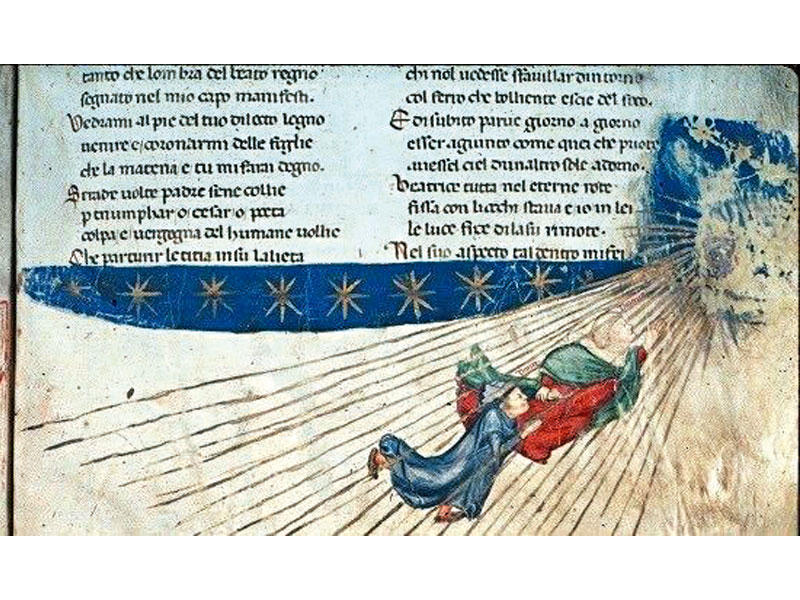 tanto che lombra del beato regno
segnato nel mio capo manifesti.
Vedrami al pie del tuo dilecto legno
uenire e coronarmi delle foglie
che la materia e tu mi farai degno.
Si rade uolte padre sene coglie
p triumphar o cesar o poeta
colpa e uergogna del humane uoglie
Che parturir letitia in su la lieta
chi nol uedesse fauillar dintorno
col ferro che bolliente escie del foco.
E di subito parue giorno a giorno
esser agiunto come quei che puote
auessel ciel dunaltro sole adorno.
Beatrice tutta nel eterne rote
fissa con liocchi staua e io in lei
le luce fixe di lasu rimote.
Nel suo aspecto tal dentro mi fei